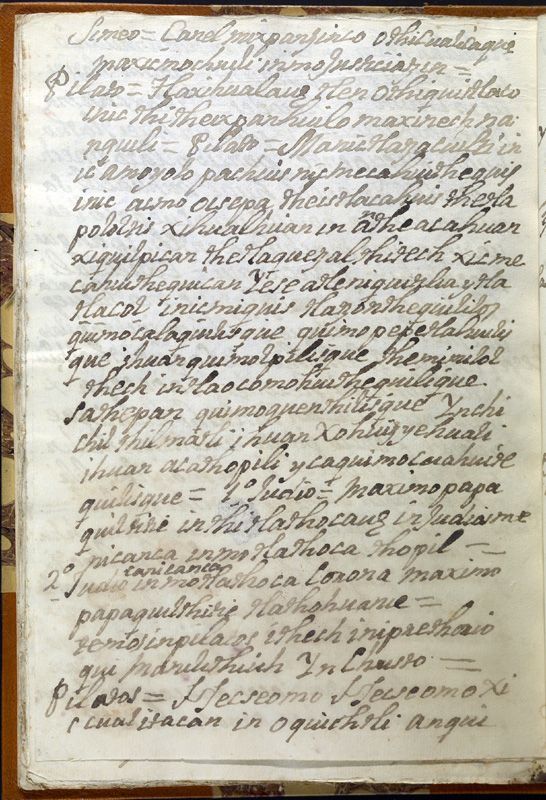 Simeo = Canel mixpantzinco othicualcaque
maximochiuili inmo Justiciatzin =
Pilato = Tlaxihualauq tlen othiquitlaco
inic thitheixpanhuilo maxinech na
nquili = Pilato = Manictlatzacuilti in
ic amoyolo pachiuis nicmecahuithequis
inic acmo occepa theistlacahuis thetla
polotis xihualhuian in atheacahuan
xiquilpican thetlaquetzaltithech xicme
cahuithequican Yese atle niquitlia ytla
tlacol inic miquis
quimocalaquilisque quimopepetlahuilis
que ihuan quimolpilisque themimilol
thech in tlaocomohuithequilique
Sathepan quimoquenthilisque Ynchi
chil thilmatli ihuan Xohuiyehuali
ihuan acathopili ycaquimocuahuite
quilisque = 1º Judio = Maximopapa
quiltitie in thitlathocauq in Judiosme
nican ca inmotlathoca thopil =
2º Judio canicanca inmotlathoca Corona maximo
papaquilthitie tlathohuanie =
temos inpilatos ithech iniprethorio
qui maruilthitih Yn Christo =
Pilatos = Hecseomo Hecseomo Xi
ccualitacan in oquichtli anqui